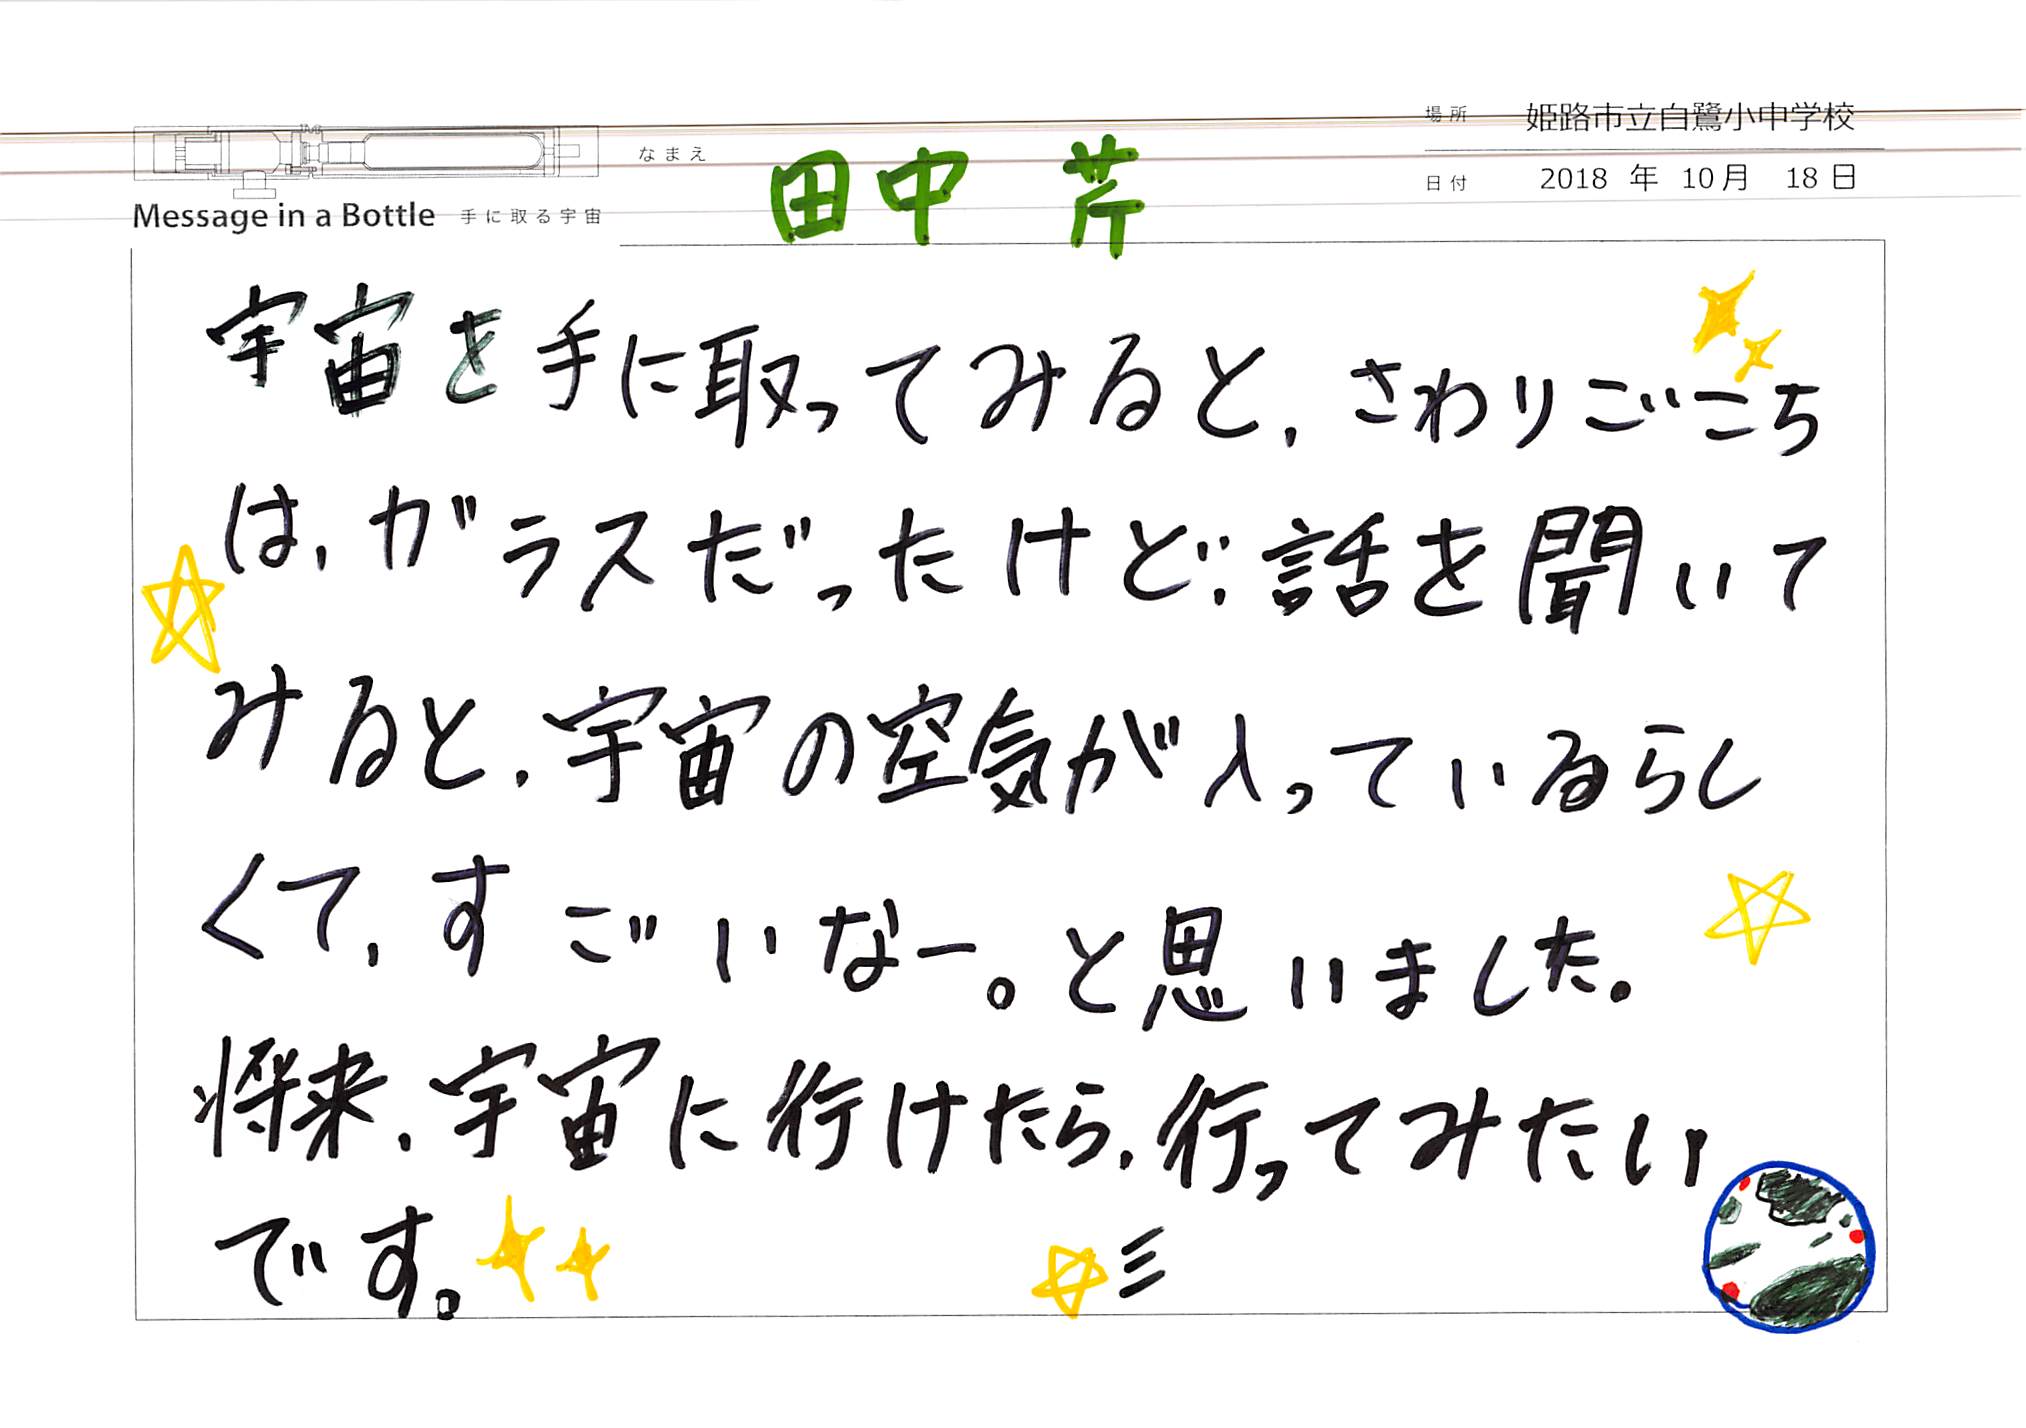 場所 姫路市立白鷺小中学校
なまえ 田中 芹
日付 2018 年 10月 18日
Message in a Bottle 手に取る宇宙
宇宙を手に取ってみると、さわりごこち
は、ガラスだったけど、話を聞いて
みると、宇宙の空気が入っているらし
くて、すごいなー。と思いました。
将来、宇宙に行けたら、行ってみたい
です。